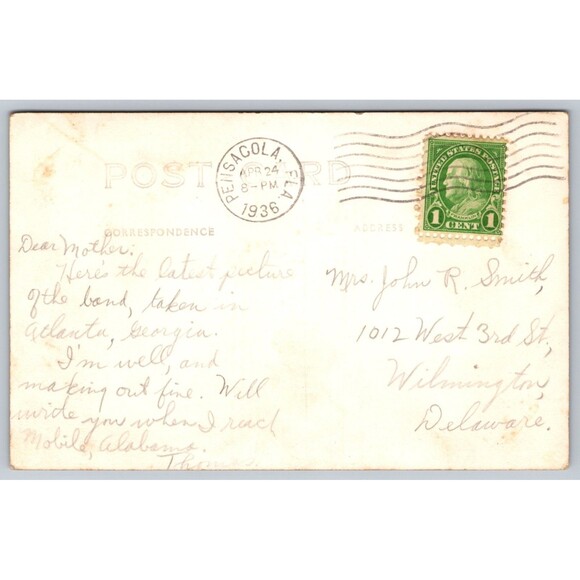 POST CARD
PENSACOLA, FLA
APR 24
8-PM
1936
UNITED STATES POSTAGE
1 CENT 1
CORRESPONDENCE
ADDRESS
Dear Mother:
Here's the latest picture
of the band, taken in
Atlanta, Georgia.
I'm well, and
making out fine. Will
write you when I reach
Mobile, Alabama.
Thomas
Mrs. John R. Smith,
1012 West 3rd St,
Wilmington,
Delaware.